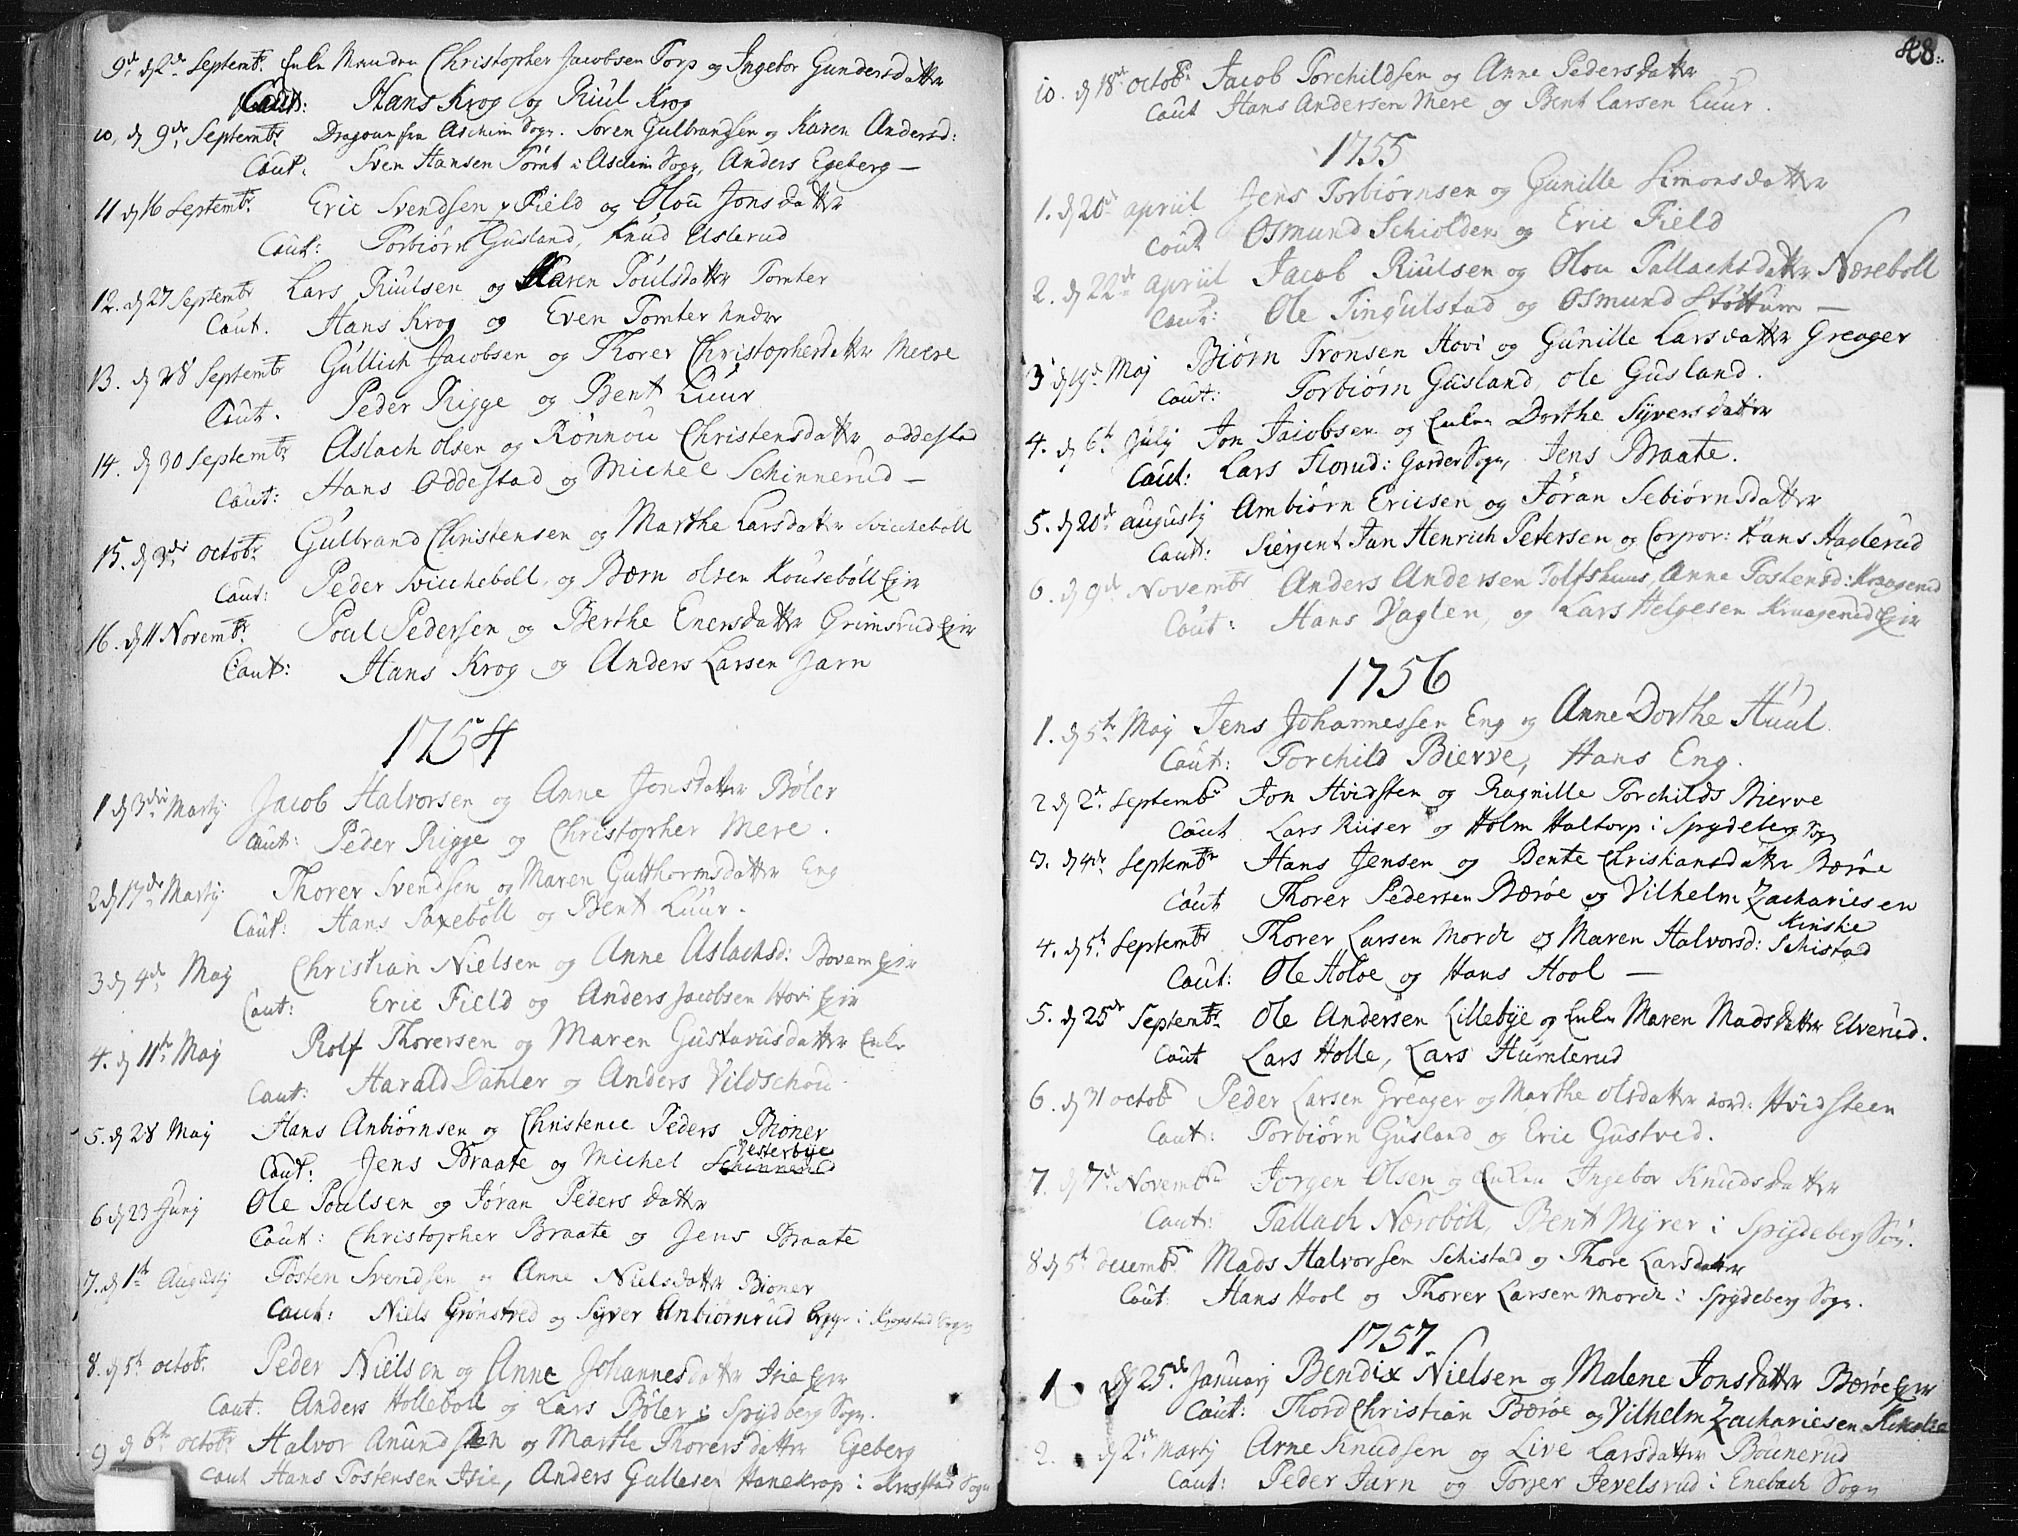 9de d 2de Septembr. Enke Manden Christopher Jacobsen Torp og Ingebor Gundersdatter
Caut: Hans Krog og Riul Krog
10, d 9de Septembr. Dragoun fra Aschim Sogn. Søren Gulbrandsen og Karen Andersd:
Caut. Sven Hansen Tomt i Aschim Sogn, Anders Egeberg —
11 d 16 Septembr. Eric Svendsen Field og Olou Jonsdatter
Caut: Torbiørn Gusland, Knud Aslerud
12. d 27 Septembr Lars Riulsen og Karen Poulsdatter Tomter
Caut. Hans Krog og Even Tomter
13. d 28 Septembr Gullich Jacobsen og Thorer Christophersdatter Meere
Caut. Peder Rigge og Bent Luur
14. d 30 Septembr Aslach olsen og Rønnou Christensdatter oddestad
Caut: Hans Oddestad og Michel Schinnerud —
15. d 3die octobr Gulbrand Christensen og Marthe Larsdatter Svicheboll
Caut: Peder Svicheboll, og Bærn olsen Kouseboll Eier
16. d 11 Novembr. Poul Pedersen og Berthe Enersdatter Grimsrud Eier
Caut: Hans Krog og Anders Larsen Jarn
1754
1 d 3die Martij Jacob Halvorsen og Anne Jonsdatter Bøler
Caut: Peder Rigge og Christopher Mere.
2 d 17de Martij Thorer Svendsen og Maren Gutthormsdatter Eng
Caut: Hans Saxeboll og Bent Luur.
3 d 4de Maij Christian Nielsen og Anne Aslachsd: Bovem Eier
Caut: Eric Field og Anders Jacobsen Hovi Eier
4. d 11te Maij Rolf Thorersen og Maren Gustavusdatter Enke
Caut: Harald Dahler og Anders Vildschou
5. d 28 Maij Hans Anbiørnsen og Christence Peders Bioner
Caut: Jens Braate og Michel Schinnerud Vesterbye
6 d 23 Junij Ole Poulsen og Jøran Pedersdatter
Caut: Christopher Braate og Jens Braate
7. d 1te Augustij Tosten Svendsen og Anne Nielsdatter Bioner
Caut: Niels Grønstved og Syver Anbiørnrud i Krogstad Sogn
8. d 5te octobr. Peder Nielsen og Anne Johannesdatter Isie Eier
Caut. Anders Holleboll og Lars Bøler i Spydberg Sogn.
9 d 6te octobr Halvor Anundsen og Marthe Thorersdatter Egeberg
Caut Hans Tostensen Isie, Anders Gullesen Hanekrop i Krogstad Sogn
48.
10. d 18de octobr Jacob Torchildsen og Anne Pedersdatter
Caut Hans Andersen Mere og Bent Larsen Luur.
1755
1. d 20de apriil Jens Torbiørnsen og Gunille Simonsdatter
Caut Osmund Schiolden og Eric Field
2. d 22de apriil Jacob Riulsen og Olou Tallachsdatter Næreboll
Caut: Ole Tingulstad og Osmund Støttum —
3 d 19de Maij Biørn Tronsen Hovi og Gunille Larsdatter Greager
Caut: Torbiørn Gusland, ole Gusland.
4. d 6te Julij Jon Jacobsen og Enke Dorthe Syversdatter
Caut: Lars Florud: Garder Sogn, Jens Braate.
5. d 20de augustij Ambiørn Ericsen og Jøran Sebiørnsdatter
Caut: Siergent Jan Henrich Petersen og Corpor: Hans Haglerud
6. d 9de Novembr Anders Andersen Tolfshuus, Anne Tostensd: Kraagerud
Caut: Hans Vaglen, og Lars Helgesen Kraagerud Eier
1756
1. d 5te Maij Jens Johannessen Eng og Anne Dorthe Huul.
Caut: Torchild Bierve, Hans Eng.
2 d 2de Septembr Jon Hvidsten og Ragnille Torchilds Bierve
Caut Lars Riiser og Holm Haltorp i Spydeberg Sogn
3. d 4de Septembr Hans Jensen og Bente Christiansdatter Bærøe
Caut Thorer Pedersen Bærøe og Vilhelm Zachariesen Kinske
4. d 5te Septembr Thorer Larsen Morck og Maren Halvorsd: Schistad
Caut: Ole Holøe og Hans Hool —
5. d 25de Septembr Ole Andersen Lillebye og Enke Maren Madsdatter Elverud.
Caut Lars Holle, Lars Humlerud
6. d 31 octobr Peder Larsen Greager og Marthe olsdatter nord: Hvidsteen
Caut: Torbiørn Gusland og Eric Gustved.
7. d 7de Novembr Jørgen Olsen og Enken Ingebor Knudsdatter
Caut: Tallach Nærebøll, Bent Myrer i Spydeberg Sogn.
8 d 5te decembr Mads Halvorsen Schistad og Thore Larsdatter
Caut: Hans Hool og Thorer Larsen Morck i Spydeberg Sogn.
1757.
1 d 25de Januarij Bendix Nielsen og Malene Jonsdatter Bærøe Eier
Caut: Thord Christian Bærøe og Vilhelm Zachariesen Kinske
2. d 2de Martij Arne Knudsen og Live Larsdatter Bounerud
Caut: Peder Jarn og Torjer Jevelsrud i Enebach Sogn